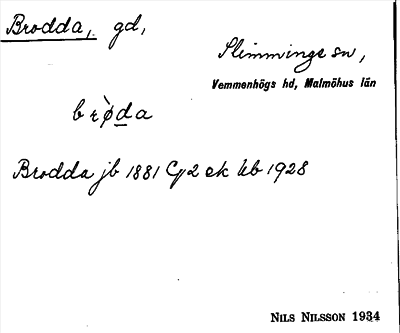 Brodda, gd,
Slimminge sn,
Vemmenhögs hd, Malmöhus län
Brodda jb 1881 ek kb 1928
NILS NILSSON 1934